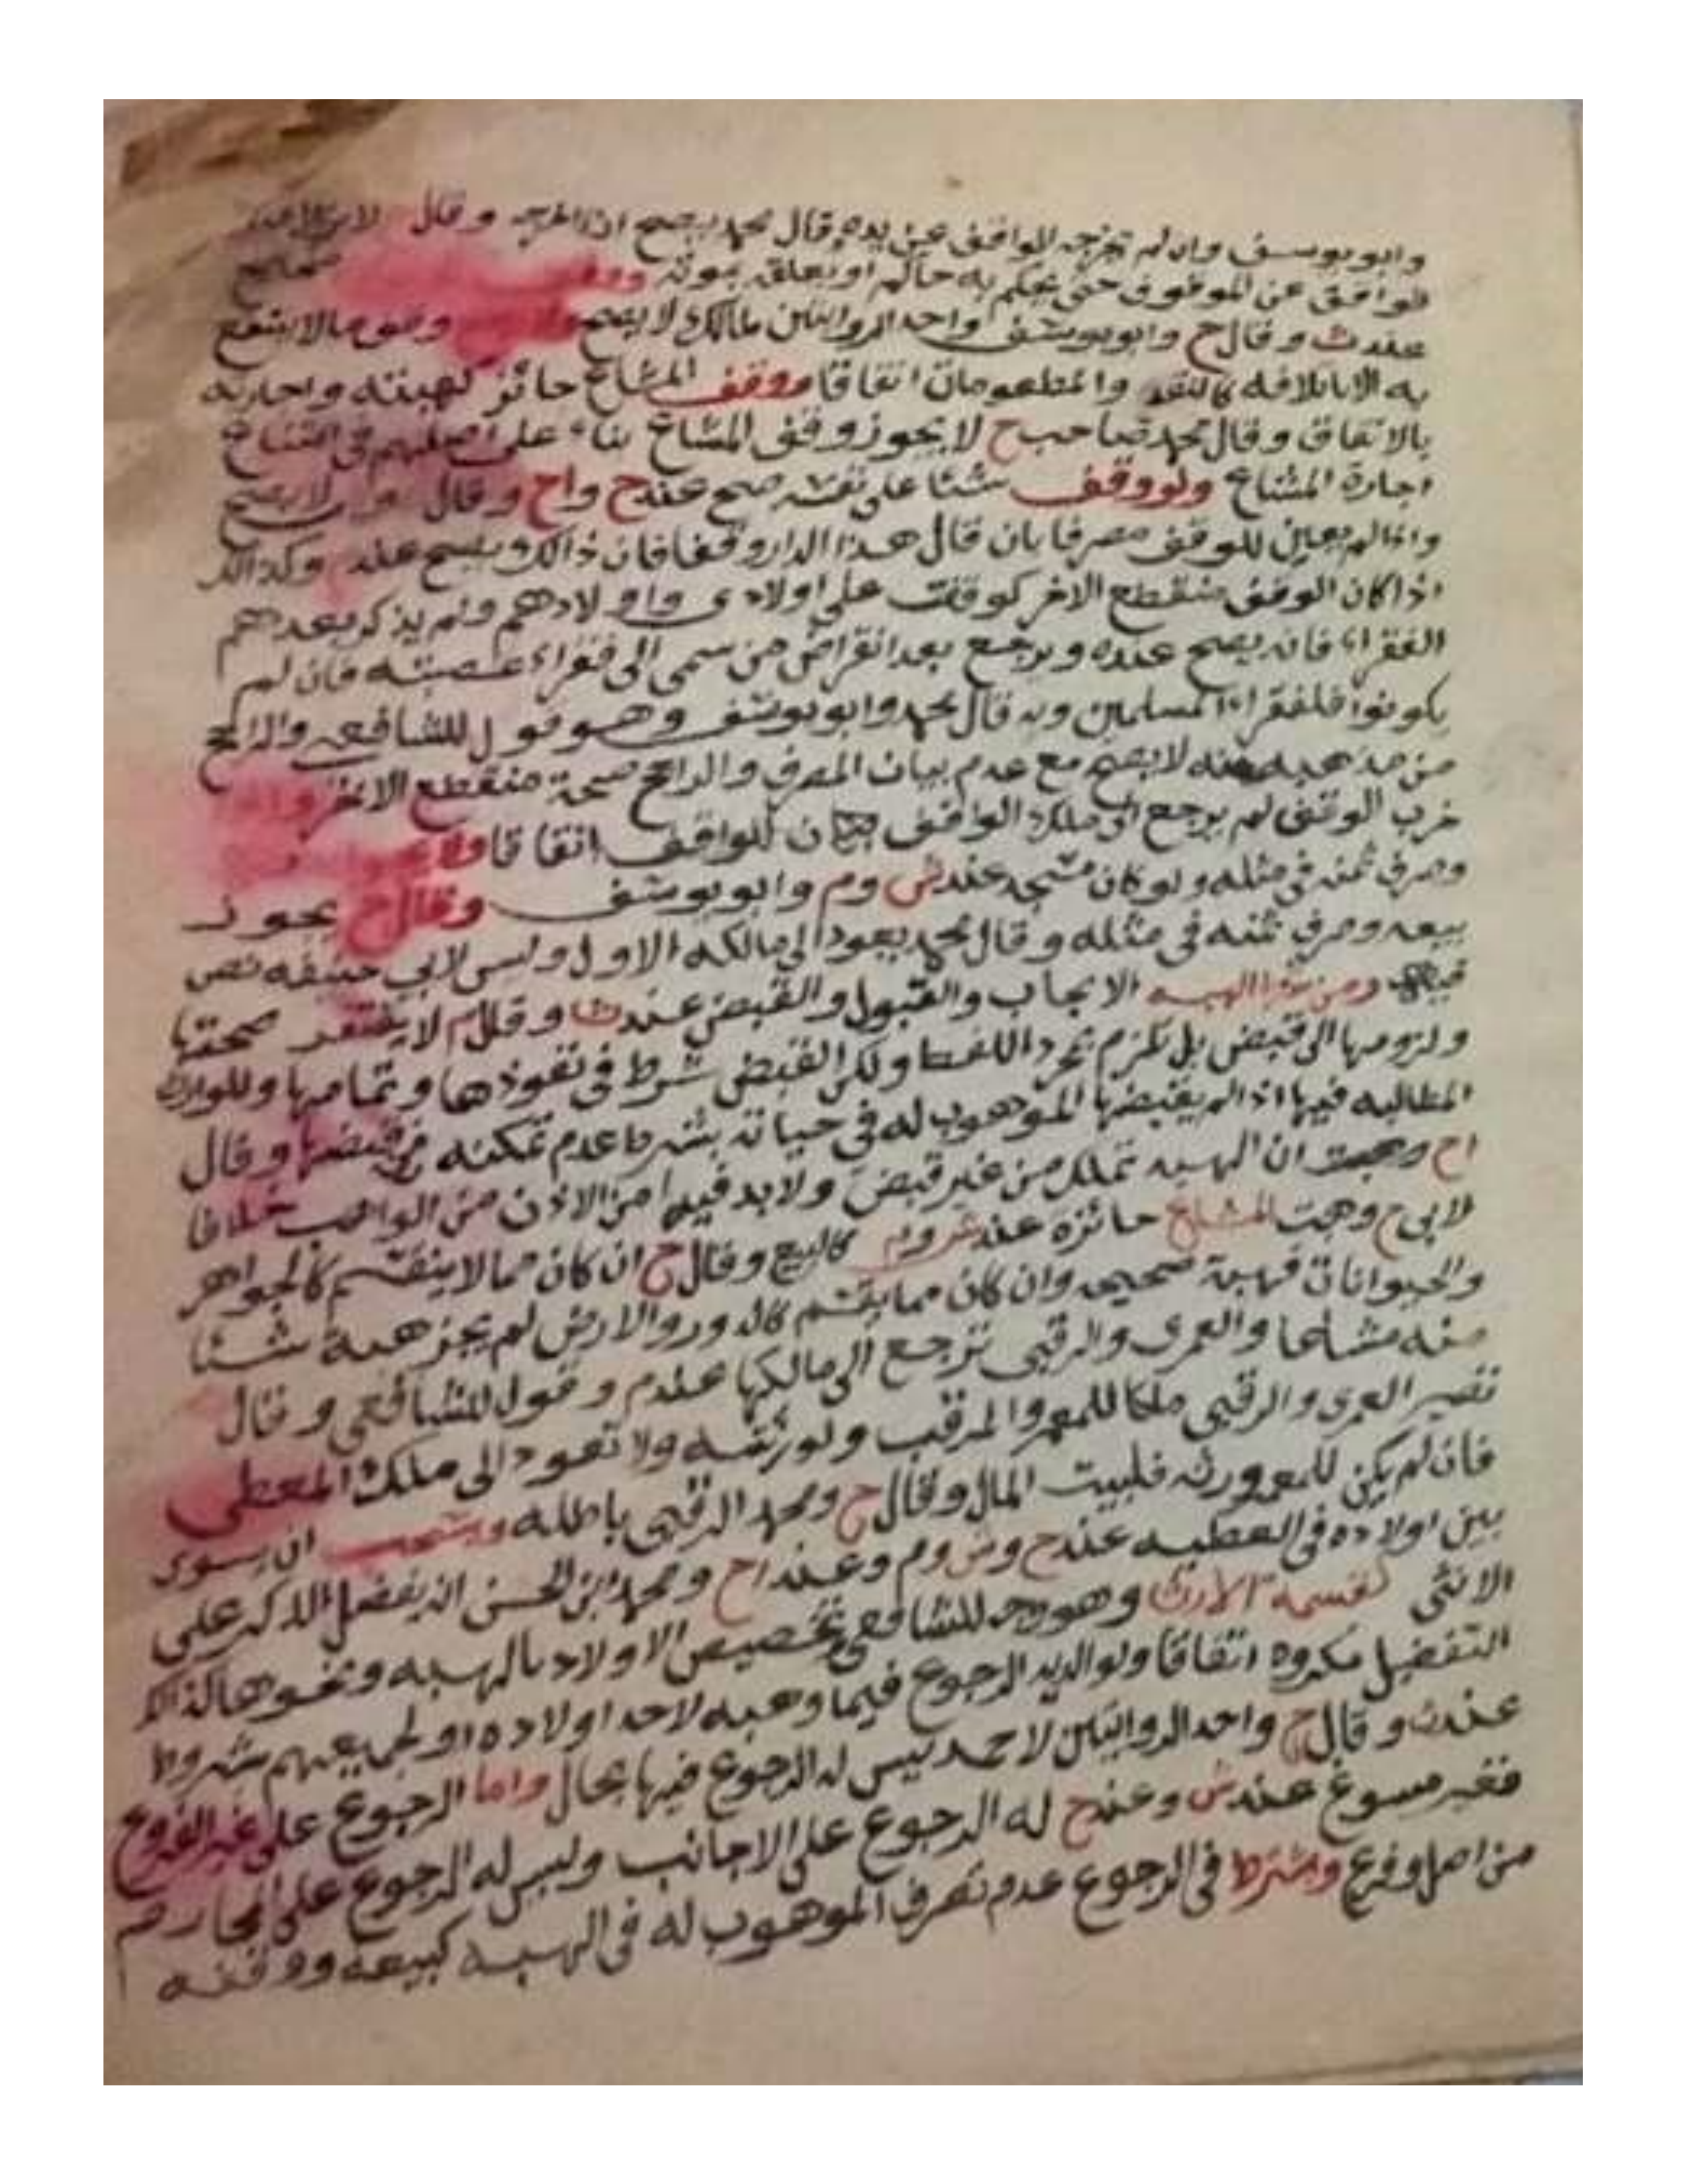 وابو يوسف وان لم يخرجه الواقف عن يده وقال محمد يصح اذا اخرجه وقال
الواقف عن الموقوف حتى يحكم به حاكم او يعلقه بموته صحيح
عند ث وقال ح وابو يوسف واحد الروايتين لمالك لا يصح وهو مالا ينتفع
به الا باتلافه كالنقد والمطعومات اتفاقا ووقف المشاع جائز كهبته واجارته
بالاتفاق وقال محمد صاحب ح لا يجوز وقف المشاع بناء على اصلهم في امتناع
اجارة المشاع ولو وقف شئا على نفسه صح عند ح واح وقال لا يصح
واذا لم يعين للوقف مصرفا بان قال هذا الدار وقفا فان ذالك يصح عند وكذالك
اذا كان الوقف منقطع الاخر كوقفت على اولادى واولادهم ولم يذكر بعدهم
الفقراء فانه يصح عنده ويرجع بعد انقراض من سمى الى فقراء عصبته فان لم
يكونوا فلفقراء المسلمين وبه قال محمد وابو يوسف وهو قول للشافعى والراجح
من مذهبه انه لا يصح مع عدم بيان المصرف والراجح صحة منقطع الاخر واذا
خرب الوقف لم يرجع الى ملك الواقف اتفاقا
وصرف ثمنه في مثله ولو كان مسجد عند ش وم وابو يوسف وقال ح يجوز
بيعه وصرف ثمنه فى مثله وقال محمد يعود الى مالكه الاول وليس لابي حنيفه نص
فيها ومن الهبه الايجاب والقبول والقبض عند ث وقال م لا يفتقر صحتها
ولزومها الى قبض بل تلزم بمجرد اللفظ ولكن القبض شرط فى نفوذها وتمامها وللوارث
المطالبه فيها اذا لم يقبضها الموهوب له في حياته بشرط عدم تمكنه من قبضها وقال
اح وصحت ان الهبه تملك من غير قبض ولا بد فيها من الاذن من الواهب خلافا
لابي ح وهبت المشاع جائزه عند ش وم كالبيع وقال ح ان كان مما لا ينقسم كالجواهر
والحيوانات فهبة صحيحه وان كان مما يقسم كالدور والارض لم يجز هبة شئا
منه مشاعا والعمرى والرقبى ترجع الى مالكها عند م وقول للشافعي وقال
تصير العمرى والرقبى ملكا للمعمر والمرقب ولورثته ولا تعود الى ملك المعطى
فان لم يكن للمعمر ورثه فلبيت المال وقال ح ومحمد الرقبى باطله ويستحب ان يسوى
بين اولاده فى العطيه عند ح وش وم وعند اح ومحمد ابن الحسن انه يفضل الذكر على
الانثى كقسمة الارث وهو وجه للشافعى وتخصيص الاولاد بالهبه ونحوها لذالك
التفضيل مكروه اتفاقا ولوالديه الرجوع فيما وهبه لاحد اولاده او لجميعهم شروط
عند ث وقال ح واحد الروايتين لاحمد ليس له الرجوع فيها بحال واما الرجوع على غير الفروع
فغير مسوغ عند ش وعند ح له الرجوع على الاجانب وليس له الرجوع على المحارم
من اصل وفرع وشرط فى الرجوع عدم تصرف الموهوب له فى الهبه كبيعه ووقفه